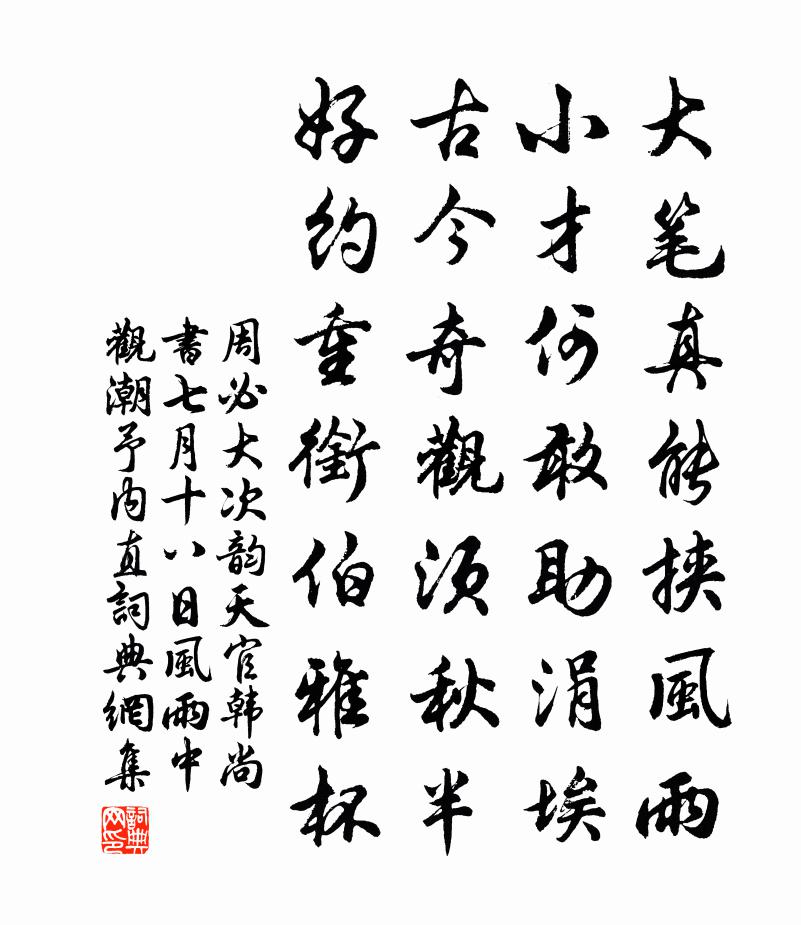 大笔真能挟風雨
小才何敢助涓埃
古今奇觀须秋半
好约重衔伯雅杯
周必大次韵天官韩尚
書七月十八日風雨中
觀潮予内直詞典網集
詞典网印